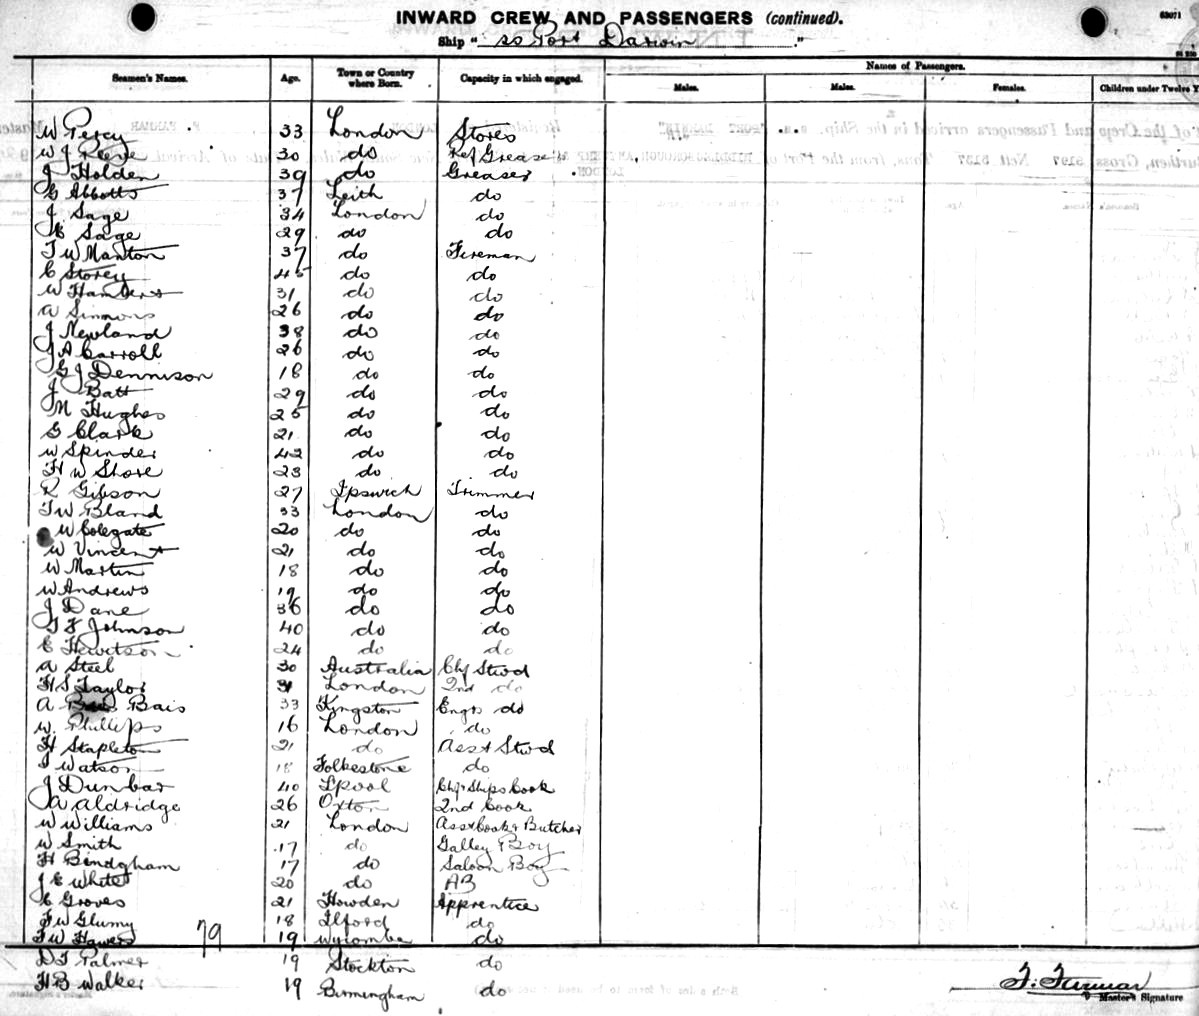 63071
INWARD CREW AND PASSENGERS (continued).
Ship " ss Port Darwin "
Seamen's Names. Age. Town or Country where Born. Capacity in which engaged. Names of Passengers.
Males. Males. Females. Children under Twelve Y
W Percy 33 London Stores
W J Reeve 30 do Ref Greaser
J Holden 39 do Greaser
G Abbotts 37 Leith do
J. Sage 34 London do
E Sage 29 do do
T W Manton 37 do Fireman
C Storey 45 do do
W 31 do do
A Simmons 26 do do
J Newland 38 do do
J A Carroll 26 do do
G J Dennison 18 do do
J Batt 29 do do
M Hughes 25 do do
G Clark 21 do do
W Spinder 42 do do
H W Shore 23 do do
R Gibson 27 Ipswich Trimmer
T W Bland 33 London do
W Colegate 20 do do
W Vincent 21 do do
W Martin 18 do do
W Andrews 19 do do
J Dane 36 do do
G F Johnson 40 do do
E Hewitson 24 do do
A Steel 30 Australia Chf Stwd
H S Taylor 31 London 2nd do
A Bais 33 Kingston Engrs do
W. Phillips 16 London do
H Stapleton 21 do Asst Stwd
T Watson 18 Folkestone do
J Dunbar 40 Lpool Chf Ships Cook
A Aldridge 26 Oxton 2nd Cook
W Williams 21 London Asst Cook & Butcher
W Smith 17 do Galley Boy
H Bindgham 17 do Saloon Boy
J E White 20 do AB
C Groves 21 Howden Apprentice
F W Glumy 18 Ilford do
F W Hawes 79 19 Wycombe do
D T Palmer 19 Stockton do
H B Walker 19 Birmingham do
Master's Signature